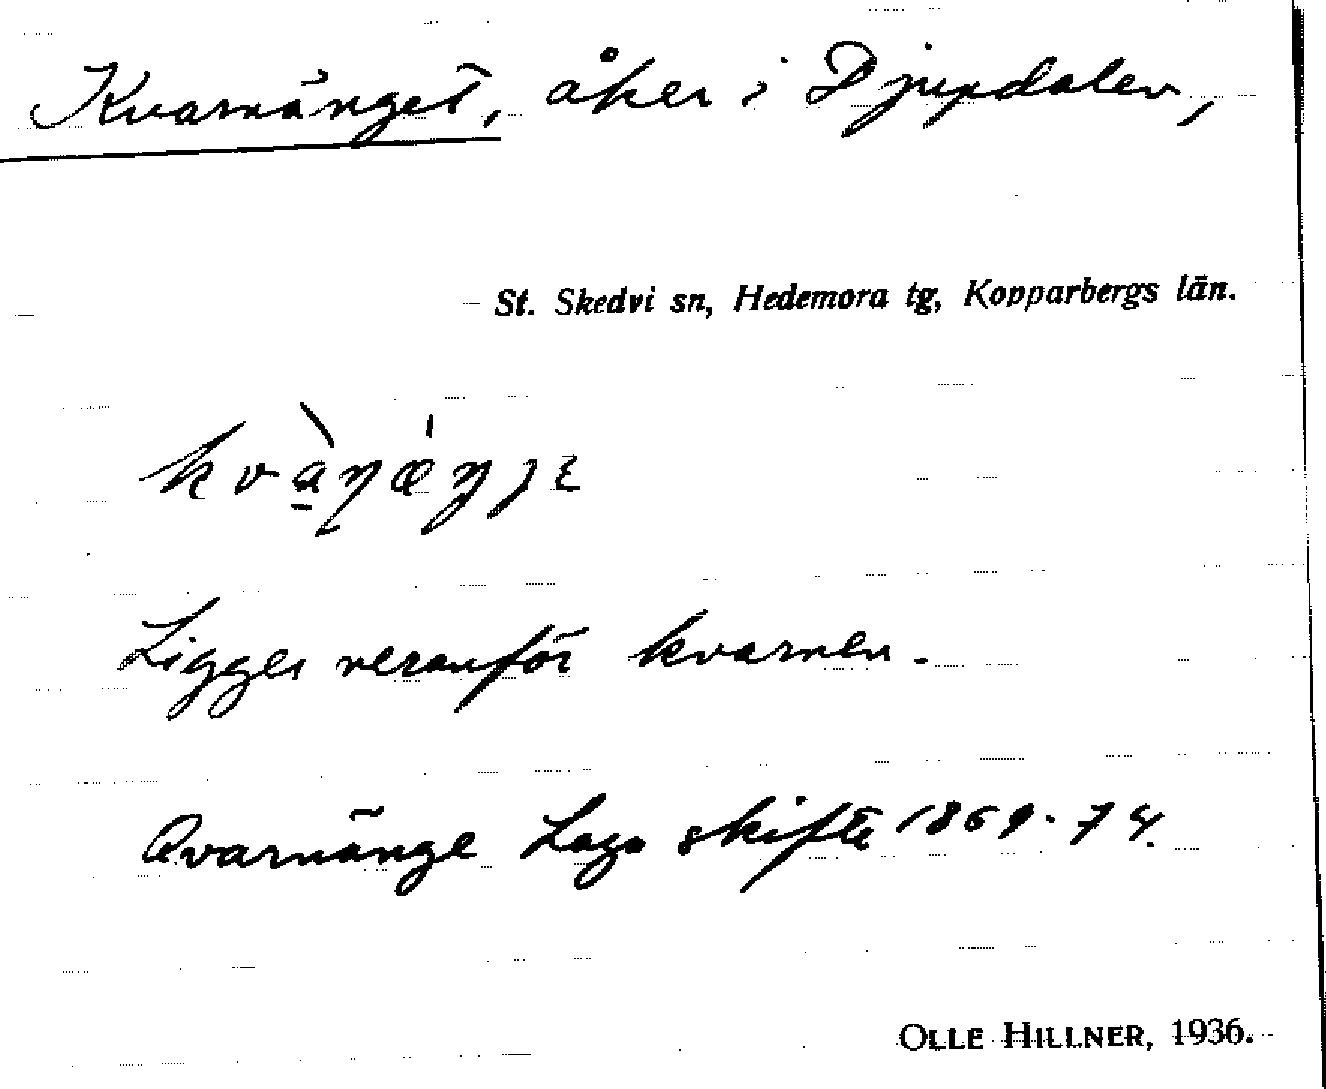 Kvarnänget, åker i Djupdalen,
St. Skedvi sn, Hedemora tg, Kopparbergs län.
Ligger neranför kvarnen.
Qvarnänge Laga skifte 1869-74.
OLLE HILLNER, 1936.